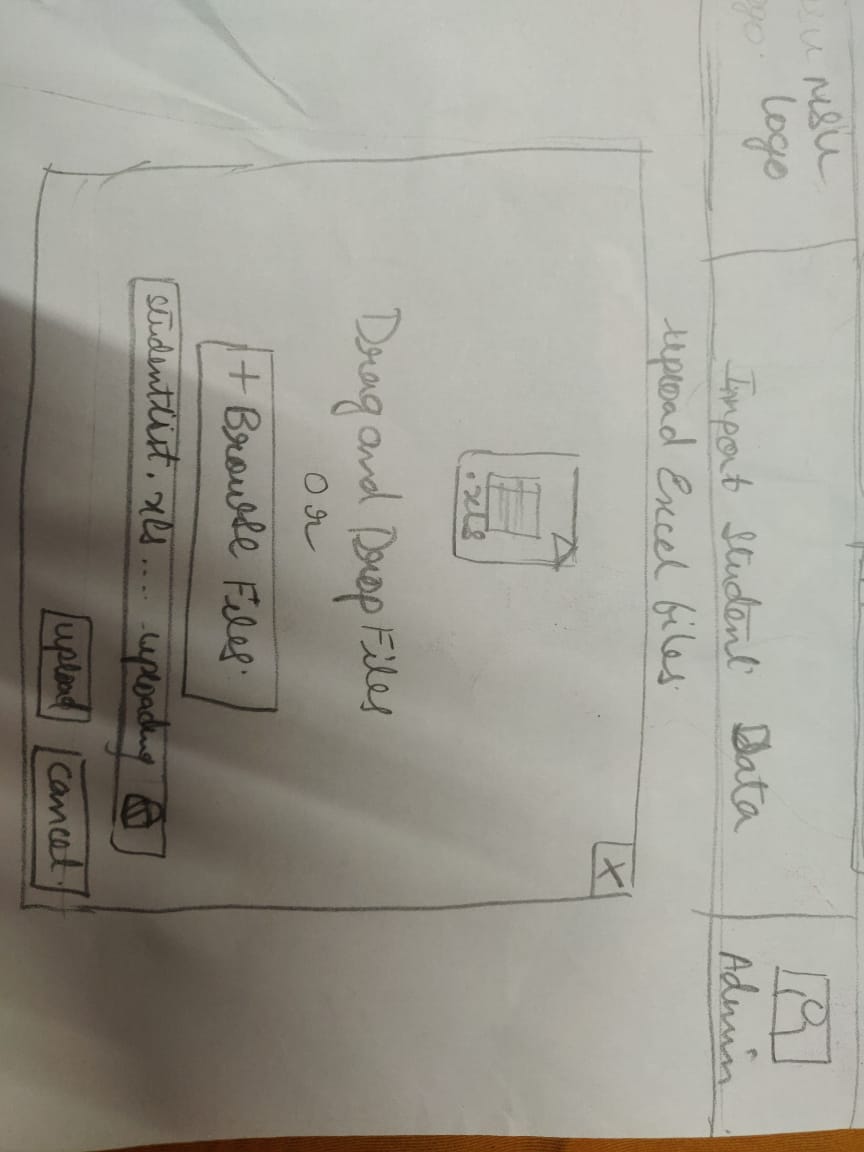 logo
Import Student Data
Admin
Upload Excel files.
X
.xls
Drag and Drop Files
or
+ Browse Files.
studentlist.xls.... uploading
upload
cancel.